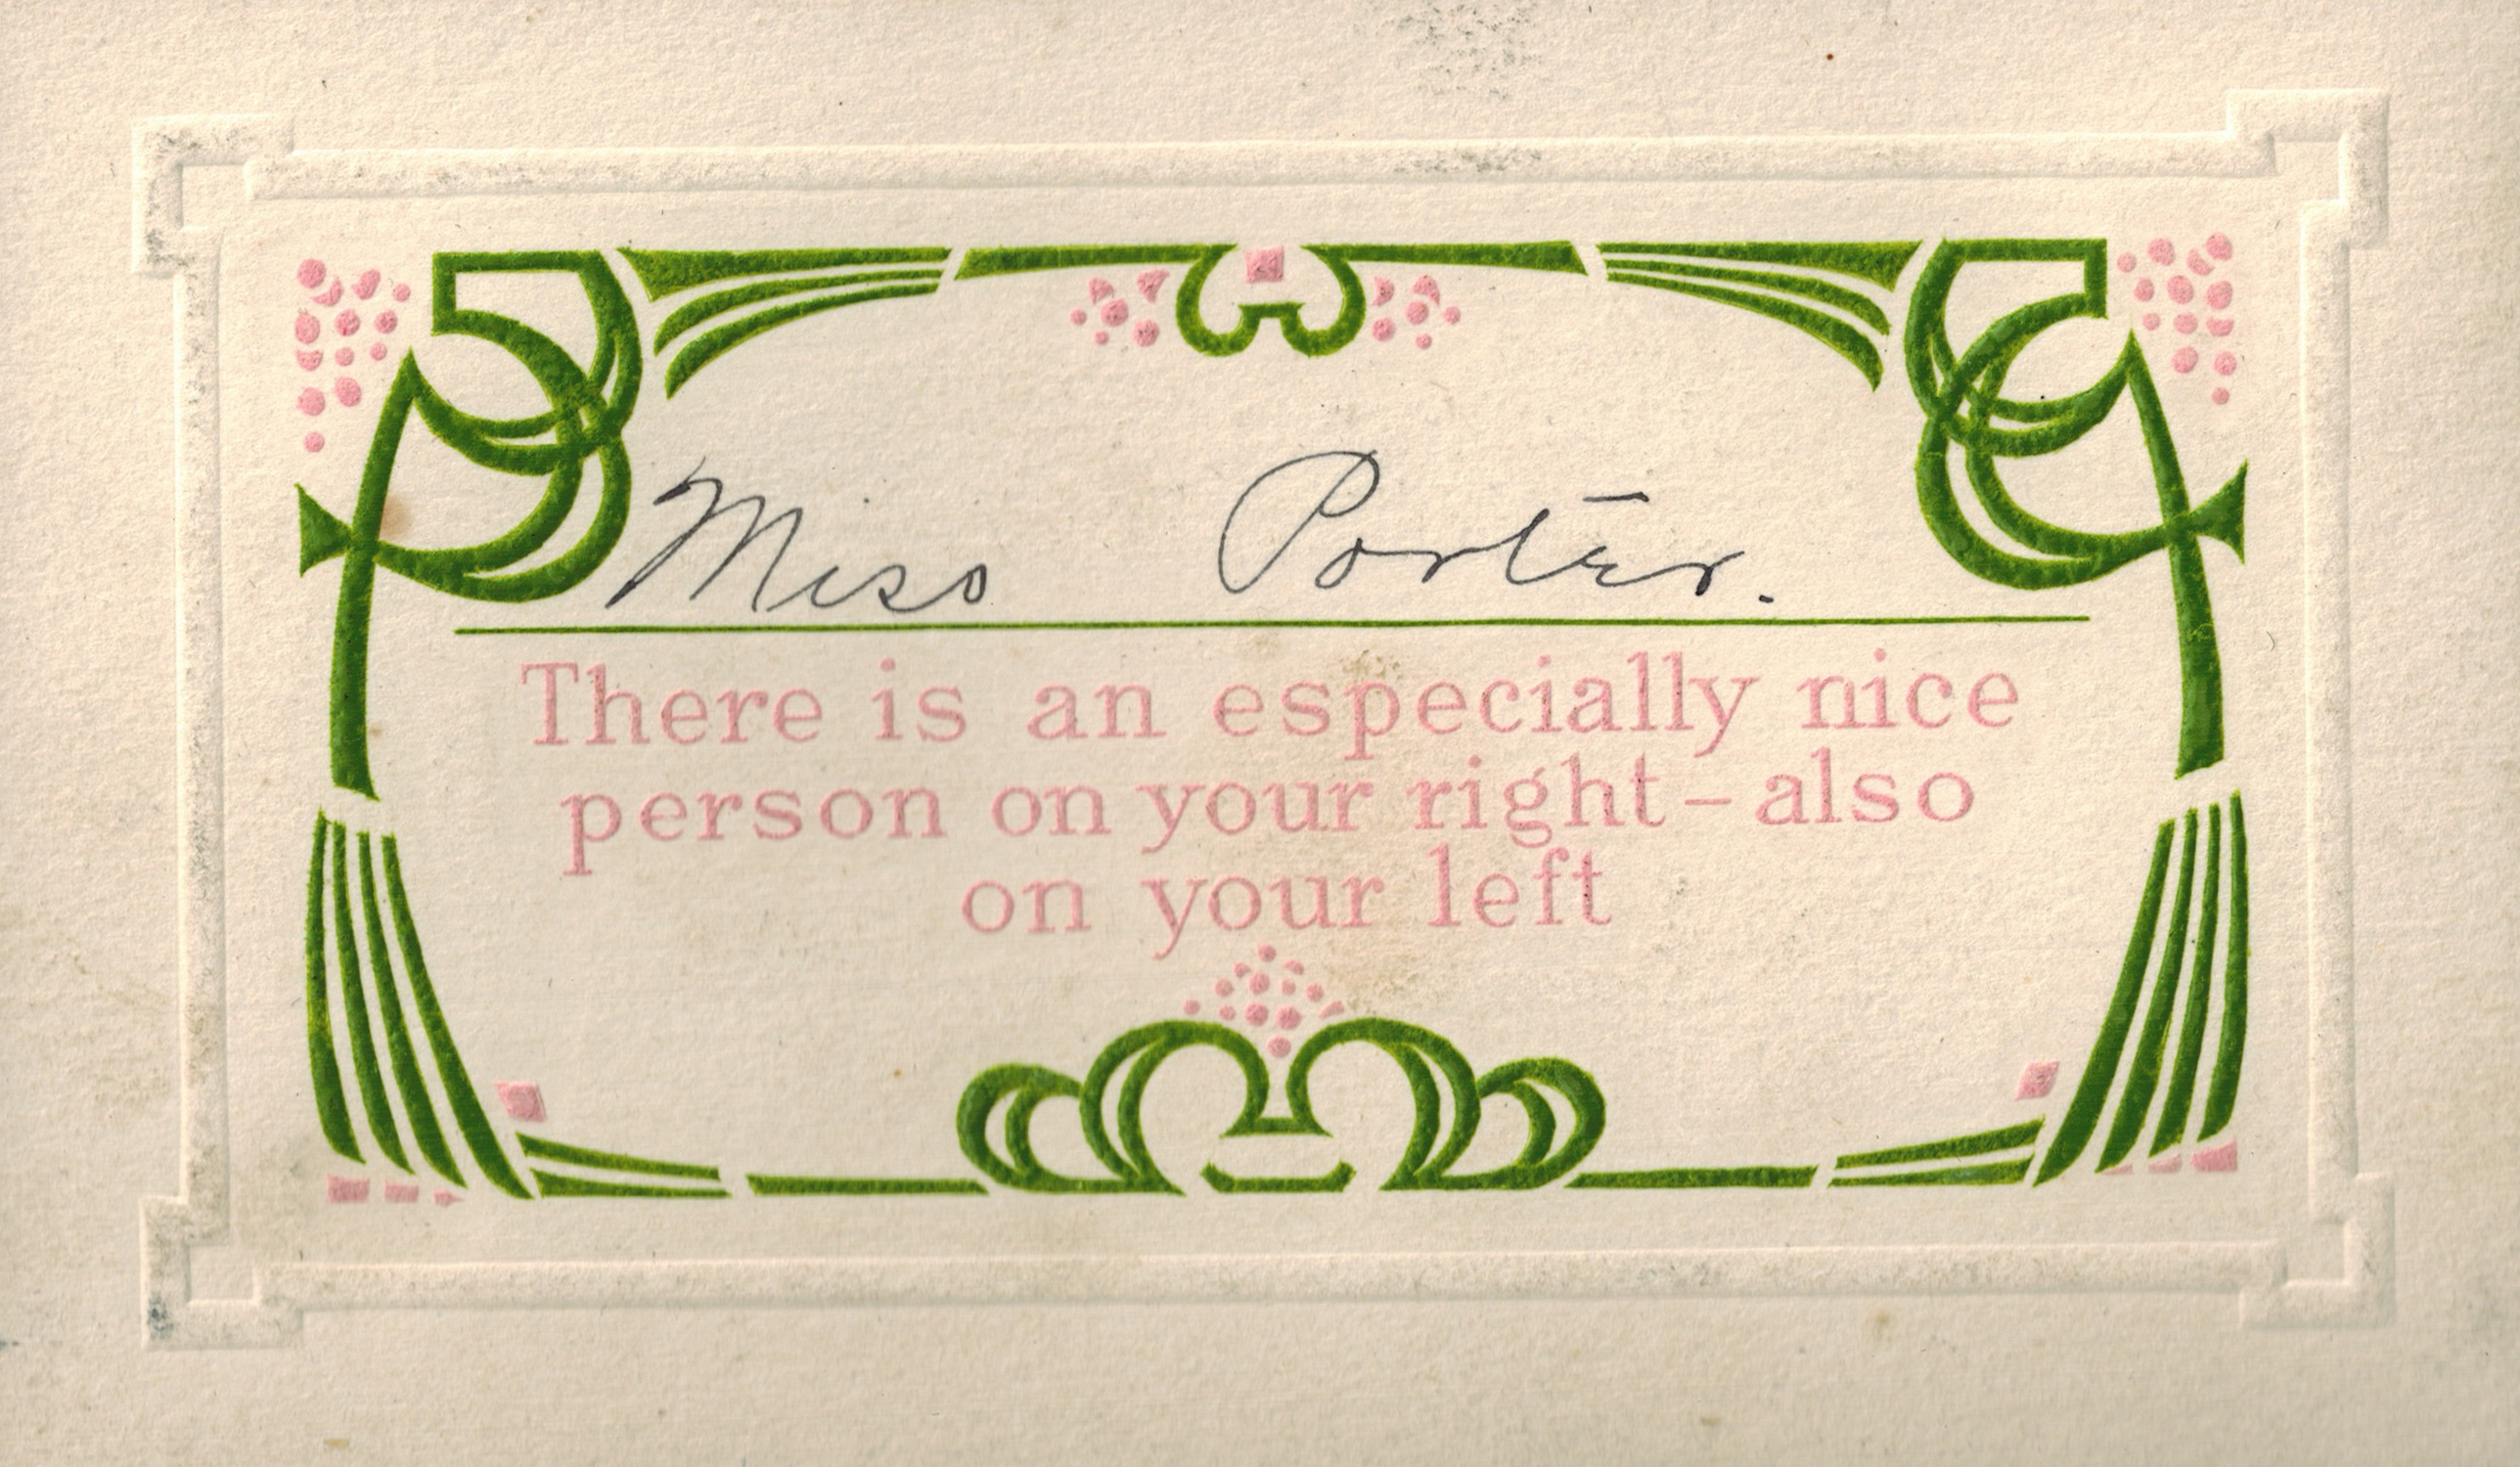 Miss Porter.
There is an especially nice
person on your right – also
on your left